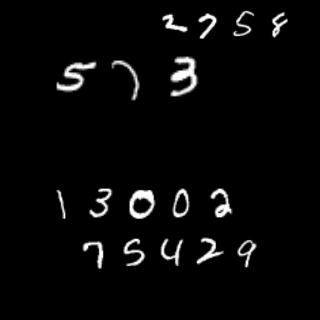 2758
573
13002
75429